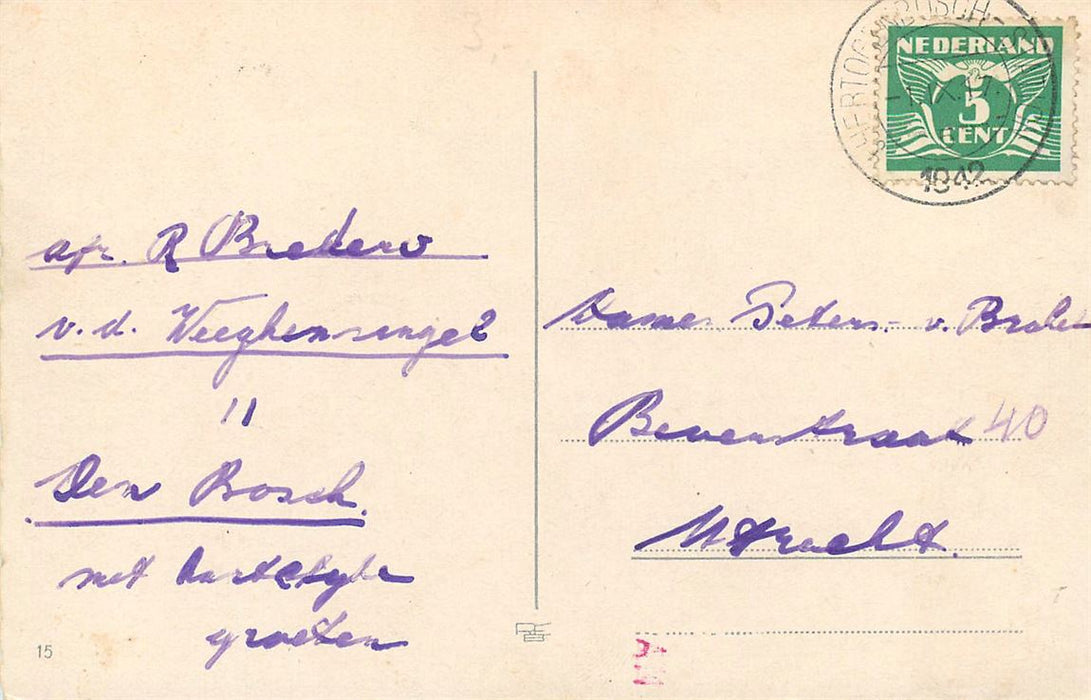 afz. R Brekers
v.d. Weeghensingel
11
Den Bosch
met hartelyke
groeten
15
HERTOGENBOSCH
1942
NEDERLAND
5
CENT
Dames Peters - v. Brake
Beverstraat 40
Utrecht.